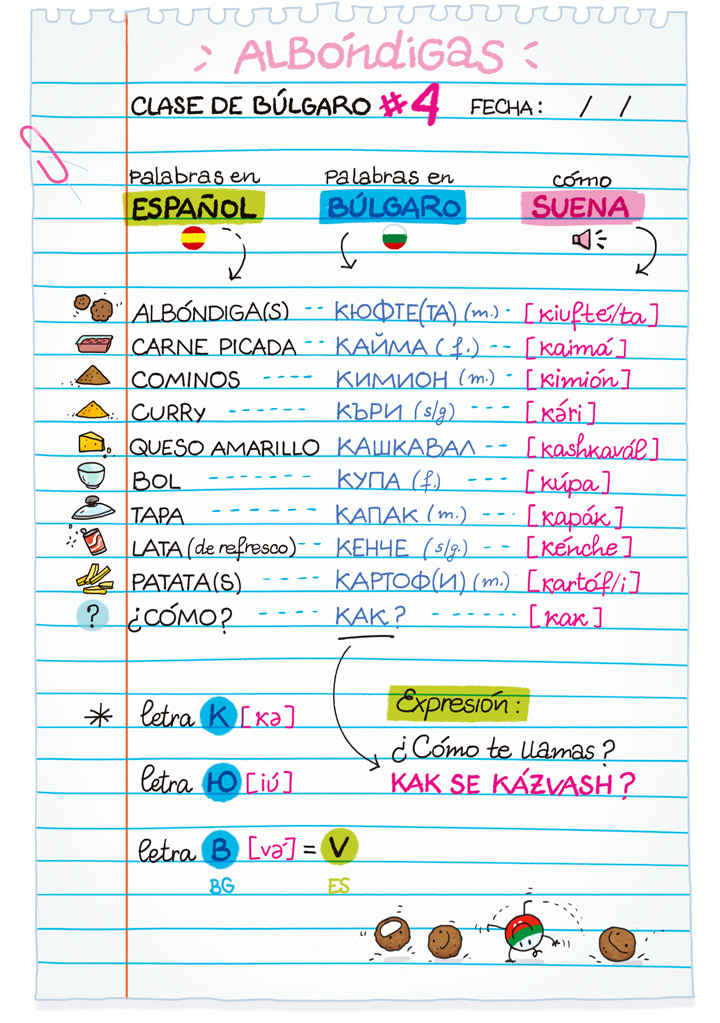 ALBÓNDIGAS
CLASE DE BÚLGARO #4 FECHA: / /
Palabras en Palabras en cómo
ESPAÑOL BÚLGARO SUENA
ALBÓNDIGA(S) -- КЮФТЕ(ТА) (m.) - [kiufté/ta]
CARNE PICADA -- КАЙМА (f.) -- [kaimá]
COMINOS ---- КИМИОН (m.) - [kimión]
CURRY ------ КЪРИ (s/g) --- [kə́ri]
QUESO AMARILLO КАШКАВАЛ -- [kashkavál]
BOL ------- КУПА (f.) --- [kúpa]
TAPA ----- КАПАК (m.) --- [kapák]
LATA (de refresco) -- КЕНЧЕ (s/g.) -- [kénche]
PATATA(S) ---- КАРТОФ(И) (m.) [kartóf/i]
? ¿CÓMO? ---- КАК? ------ [kak]
* letra К [kə]
Expresión:
¿Cómo te llamas?
KAK SE KÁZVASH?
letra Ю [iú]
letra В [və́] = V
BG ES